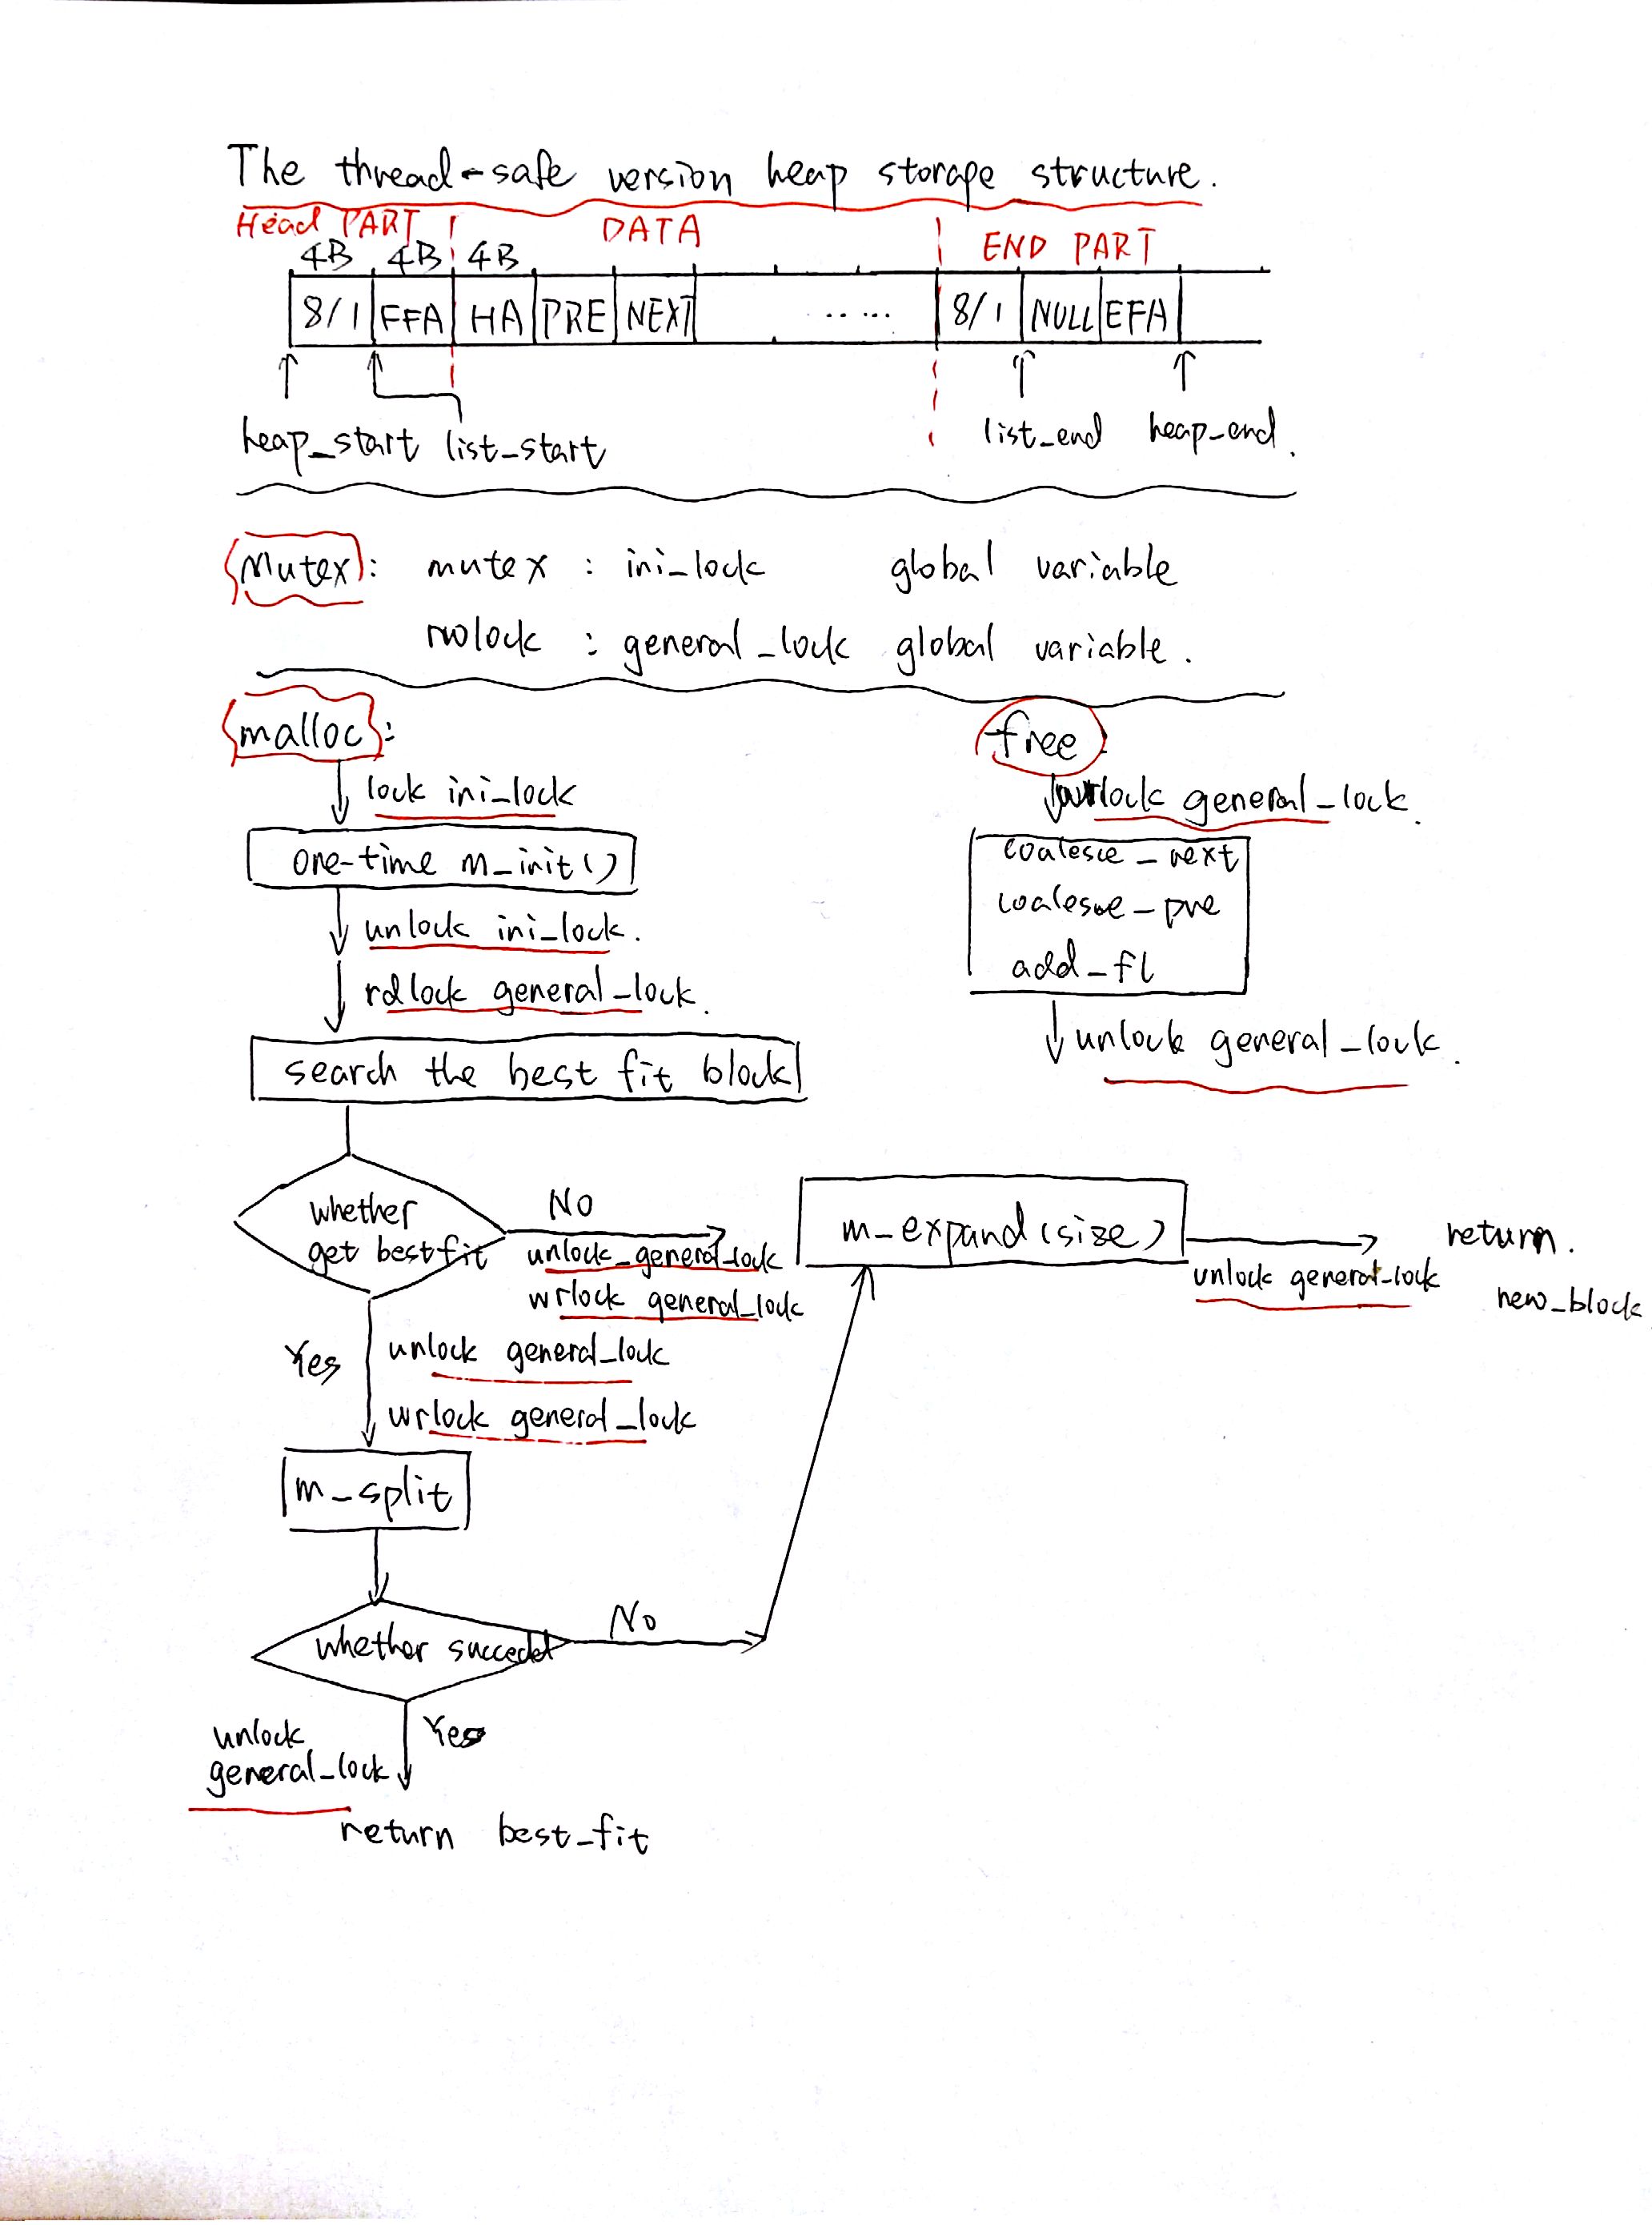 The thread-safe version heap storage structure.
Head PART DATA END PART
4B 4B 4B
8/1 FFA HA PRE NEXT ...... 8/1 NULL EFA
heap_start list_start list_end heap_end.
Mutex: mutex : ini_lock global variable
rwlock : general_lock global variable.
malloc:
lock ini_lock
one-time m_init()
unlock ini_lock.
rdlock general_lock.
search the best fit block
whether
get bestfit
NO
unlock_general_lock
wrlock general_lock
m_expand(size)
unlock general_lock
return.
new_block
Yes
unlock general_lock
wrlock general_lock
m_split
whether succeed
No
Yes
unlock
general_lock
return best_fit
free:
wrlock general_lock.
coalesce_next
coalesce_pre
add_fl
unlock general_lock.